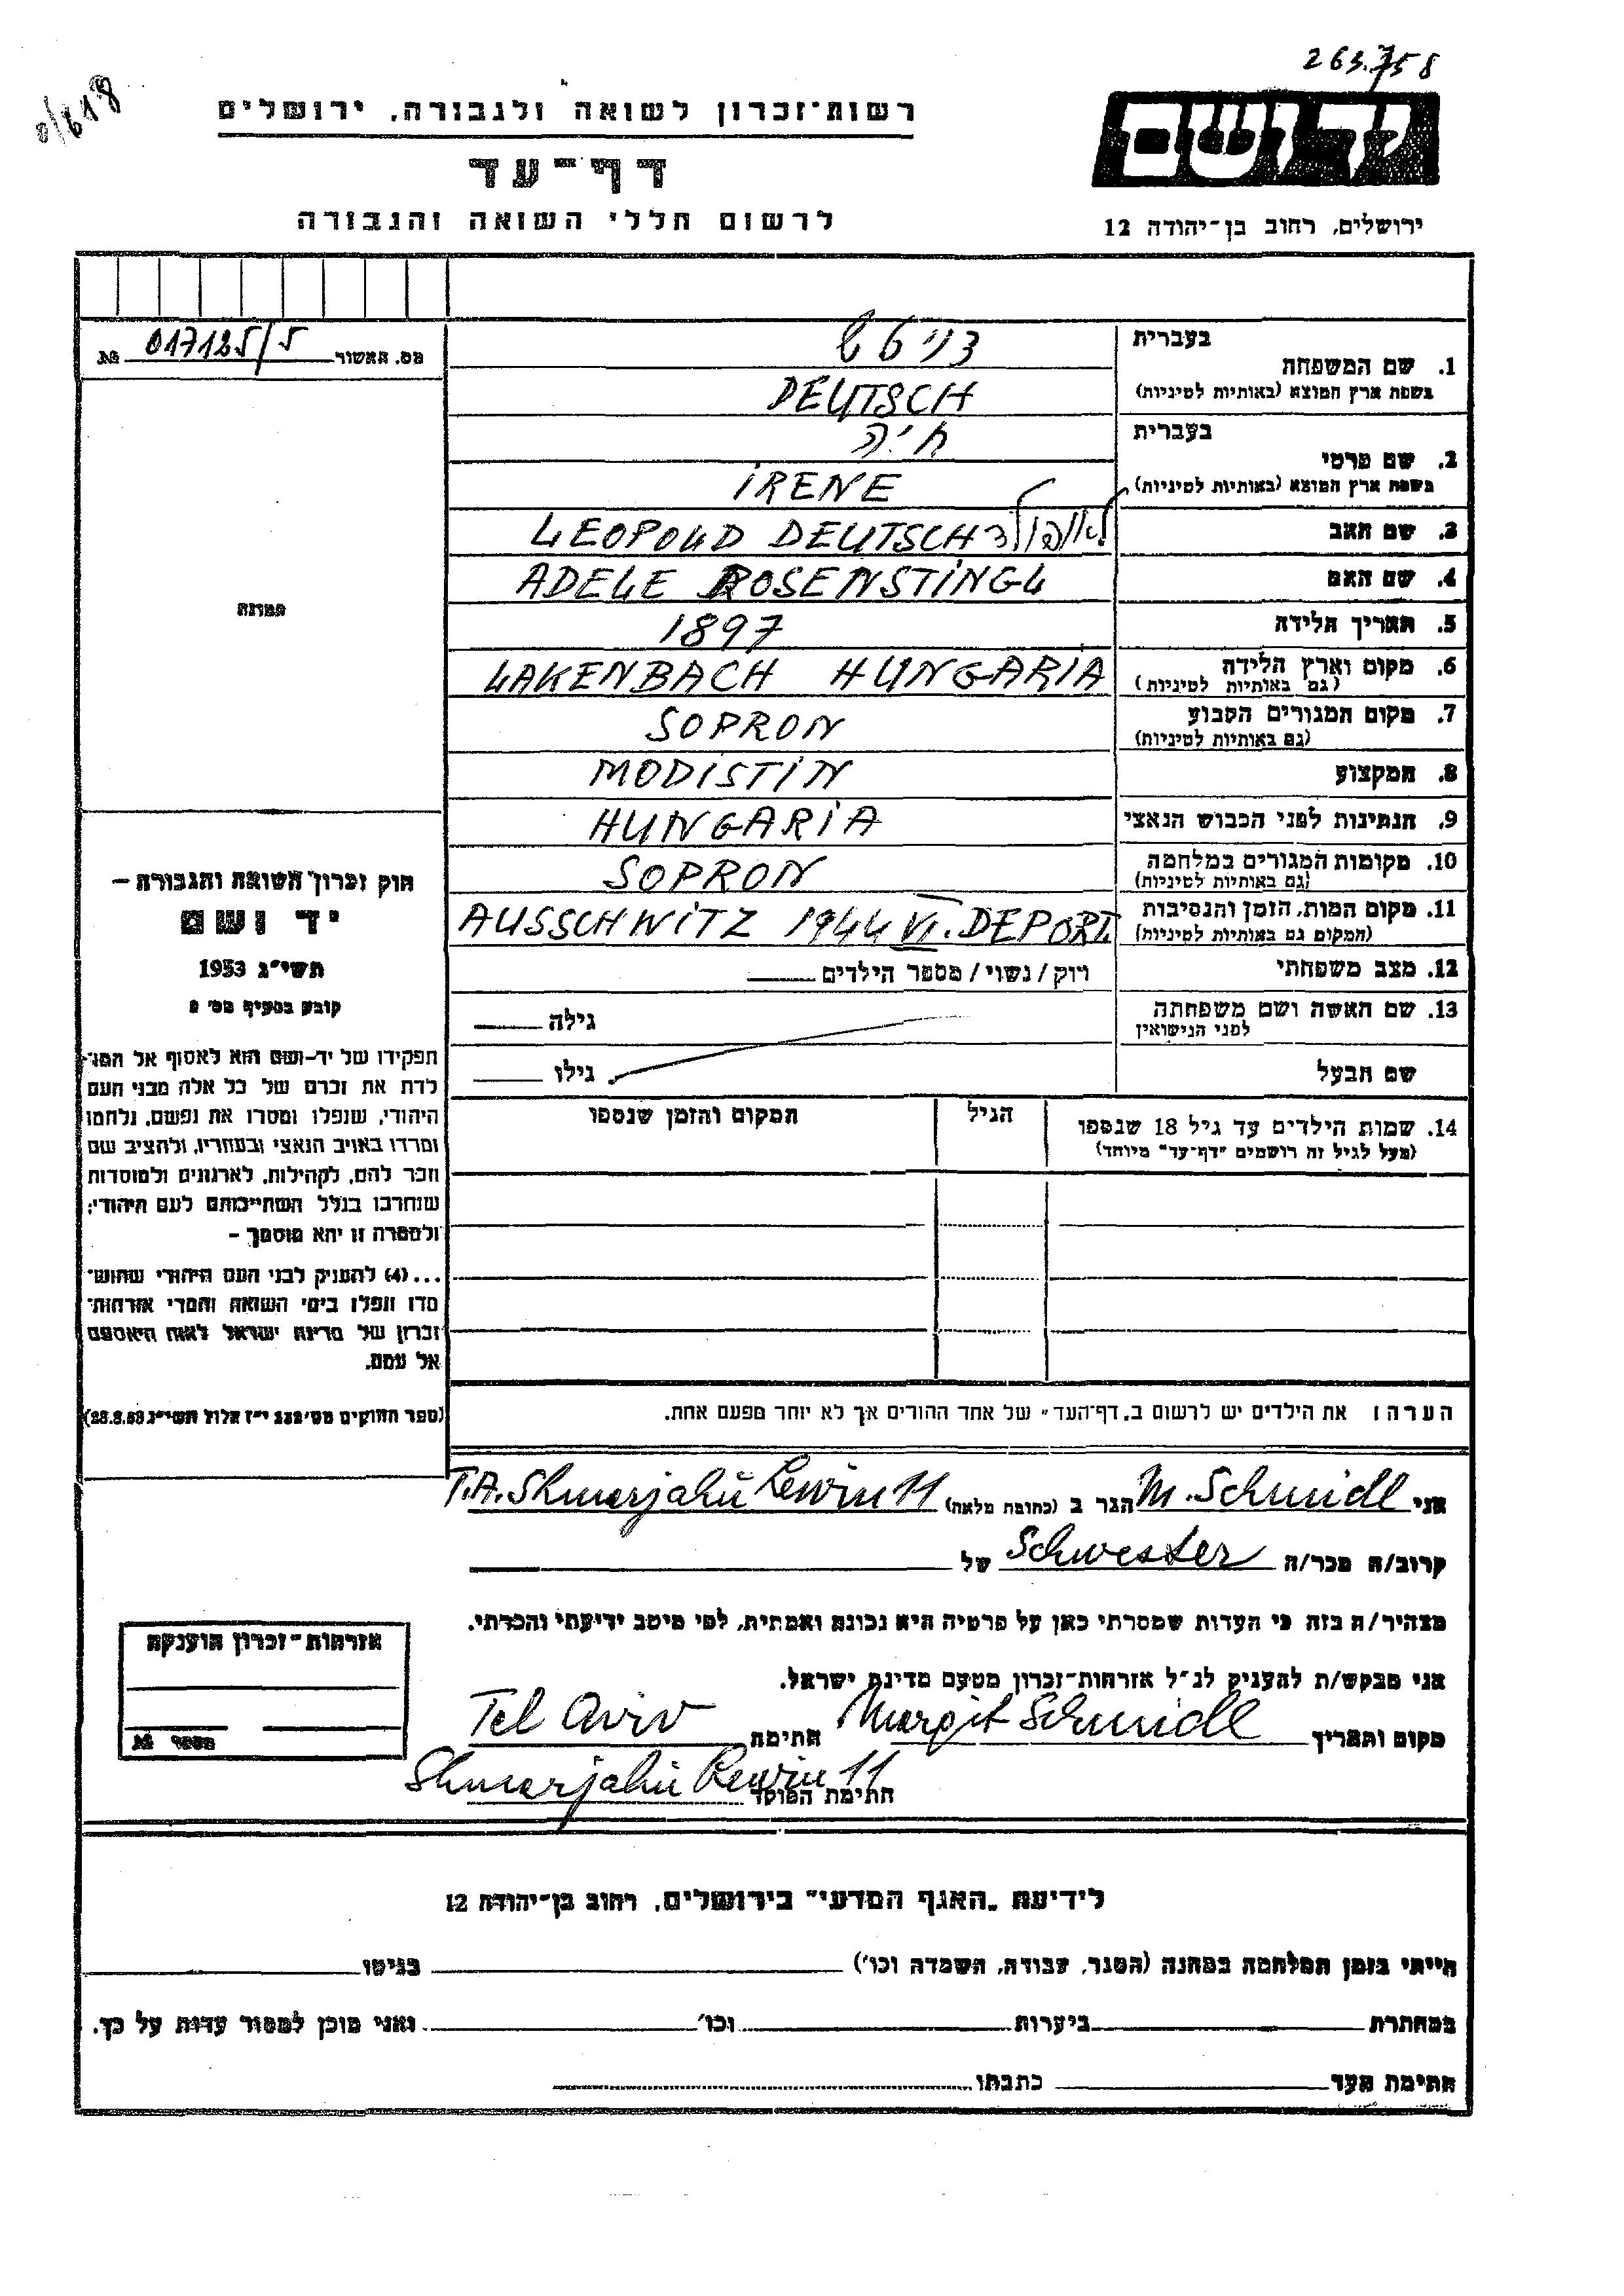 263.758
0/618
רשות־זכרון לשואה ולגבורה, ירושלים
יד ושם
דף־עד
לרשום חללי השואה והגבורה
ירושלים, רחוב בן־יהודה 12
מס. האשור № 017125/5
בעברית דייטש
1. שם המשפחה
בשפת ארץ המוצא (באותיות לטיניות) DEUTSCH
בעברית חיה
2. שם פרטי
בשפת ארץ המוצא (באותיות לטיניות) IRENE
3. שם האב לאופולד LEOPOLD DEUTSCH
4. שם האם ADELE ROSENSTINGL
5. תאריך הלידה 1897
6. מקום וארץ הלידה LAKENBACH HUNGARIA
(גם באותיות לטיניות)
7. מקום המגורים הקבוע SOPRON
(גם באותיות לטיניות)
8. המקצוע MODISTIN
9. הנתינות לפני הכבוש הנאצי HUNGARIA
10. מקומות המגורים במלחמה SOPRON
(גם באותיות לטיניות)
11. מקום המות, הזמן והנסיבות AUSSCHWITZ 1944 VI. DEPORT.
(המקום גם באותיות לטיניות)
12. מצב משפחתי רווק/נשוי/מספר הילדים
13. שם האשה ושם משפחתה גילה
לפני הנישואין
שם הבעל גילו
14. שמות הילדים עד גיל 18 שנספו הגיל המקום והזמן שנספו
(מעל לגיל זה רושמים "דף־עד" מיוחד)
הערה: את הילדים יש לרשום ב„דף־העד" של אחד ההורים אך לא יותר מפעם אחת.
תמונה
חוק זכרון השואה והגבורה –
יד ושם
תשי"ג 1953
קובע בסעיף מס' 2
תפקידו של יד-ושם הוא לאסוף אל המו־
לדת את זכרם של כל אלה מבני העם
היהודי, שנפלו ומסרו את נפשם, נלחמו
ומרדו באויב הנאצי ובעוזריו, ולהציב שם
וזכר להם, לקהילות, לארגונים ולמוסדות
שנחרבו בגלל השתייכותם לעם היהודי;
ולמטרה זו יהא מוסמך –
...(4) להעניק לבני העם היהודי שהוש־
מדו ונפלו בימי השואה והמרי אזרחות־
זכרון של מדינת ישראל לאות היאספם
אל עמם.
(ספר החוקים מס' 132 י"ז אלול תשי"ג 28.8.53)
אני M. Schmidl הגר ב (כתובת מלאה) T.A. Shmarjahu Lewin 11
קרוב/ה מכר/ה Schwester של
מצהיר/ה בזה כי העדות שמסרתי כאן על פרטיה היא נכונה ואמתית, לפי מיטב ידיעתי והכרתי.
אני מבקש/ת להעניק לנ"ל אזרחות־זכרון מטעם מדינת ישראל.
מקום ותאריך Margit Schmidl חתימה Tel Aviv
חתימת הפוקד Shmarjahu Lewin 11
אזרחות־זכרון הוענקה
מספר №
לידיעת „האגף המדעי" בירושלים, רחוב בן־יהודה 12
הייתי בזמן המלחמה במחנה (הסגר, עבודה, השמדה וכו') בגיטו
במחתרת ביערות וכו' ואני מוכן למסור עדות על כך.
חתימת העד כתבתו